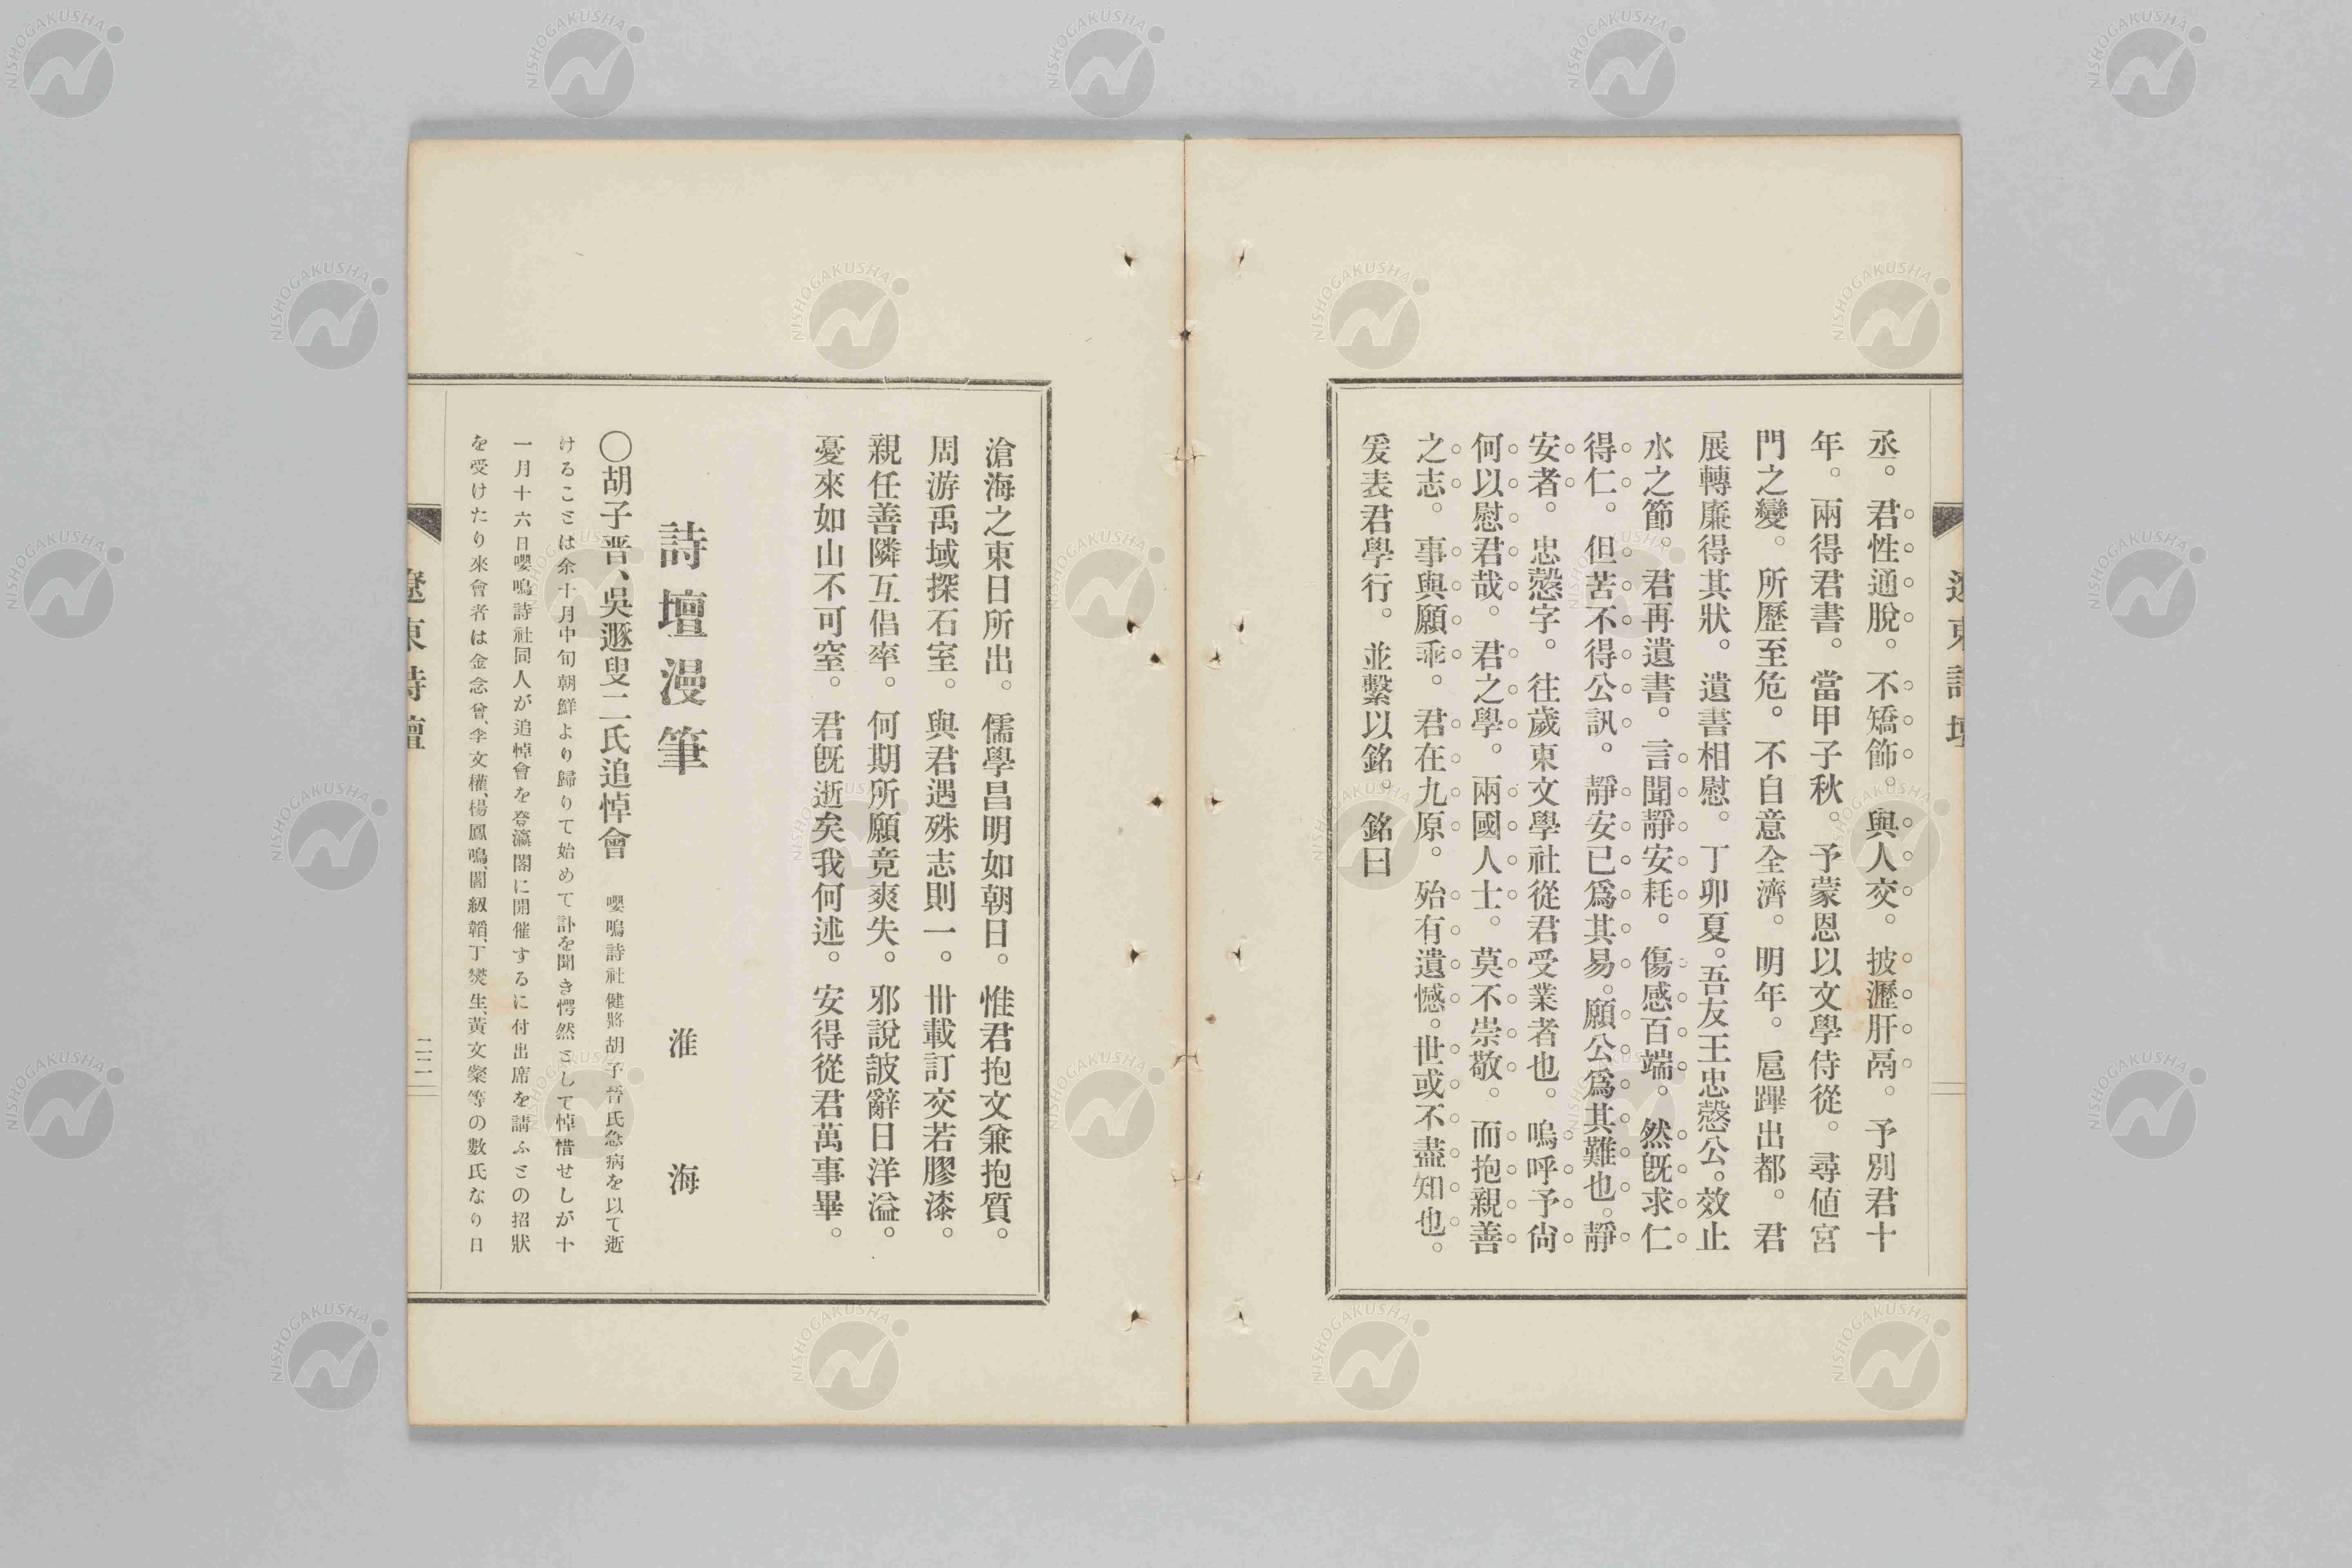 丞。君性通脫。不矯飾。與人交。披瀝肝鬲。予別君十
年。兩得君書。當甲子秋。予蒙恩以文學侍從。尋値宮
門之變。所歷至危。不自意全濟。明年。扈蹕出都。君
展轉廉得其狀。遺書相慰。丁卯夏。吾友王忠愨公。效止
水之節。君再遺書。言聞靜安耗。傷感百端。然旣求仁
得仁。但苦不得公訊。靜安已爲其易。願公爲其難也。靜
安者。忠愨字。往歲東文學社從君受業者也。嗚呼予尙
何以慰君哉。君之學。兩國人士。莫不崇敬。而抱親善
之志。事與願乖。君在九原。殆有遺憾。世或不盡知也。
爰表君學行。並繫以銘。銘曰
滄海之東日所出。儒學昌明如朝日。惟君抱文兼抱質。
周游禹域探石室。與君遇殊志則一。卅載訂交若膠漆。
親任善隣互倡率。何期所願竟爽失。邪說詖辭日洋溢。
憂來如山不可窒。君旣逝矣我何述。安得從君萬事畢。
詩壇漫筆 淮海
〇胡子晋、吳遯叟二氏追悼會 嚶鳴詩社健將胡子晉氏急病を以て逝
けることは余十月中旬朝鮮より歸りて始めて訃を聞き愕然として悼惜せしが十
一月十六日嚶鳴詩社同人が追悼會を登瀛閣に開催するに付出席を請ふとの招狀
を受けたり來會者は金念曾、李文權、楊鳳鳴、閻紉韜、丁燮生、黃文粲等の數氏なり日
遼東詩壇
二二